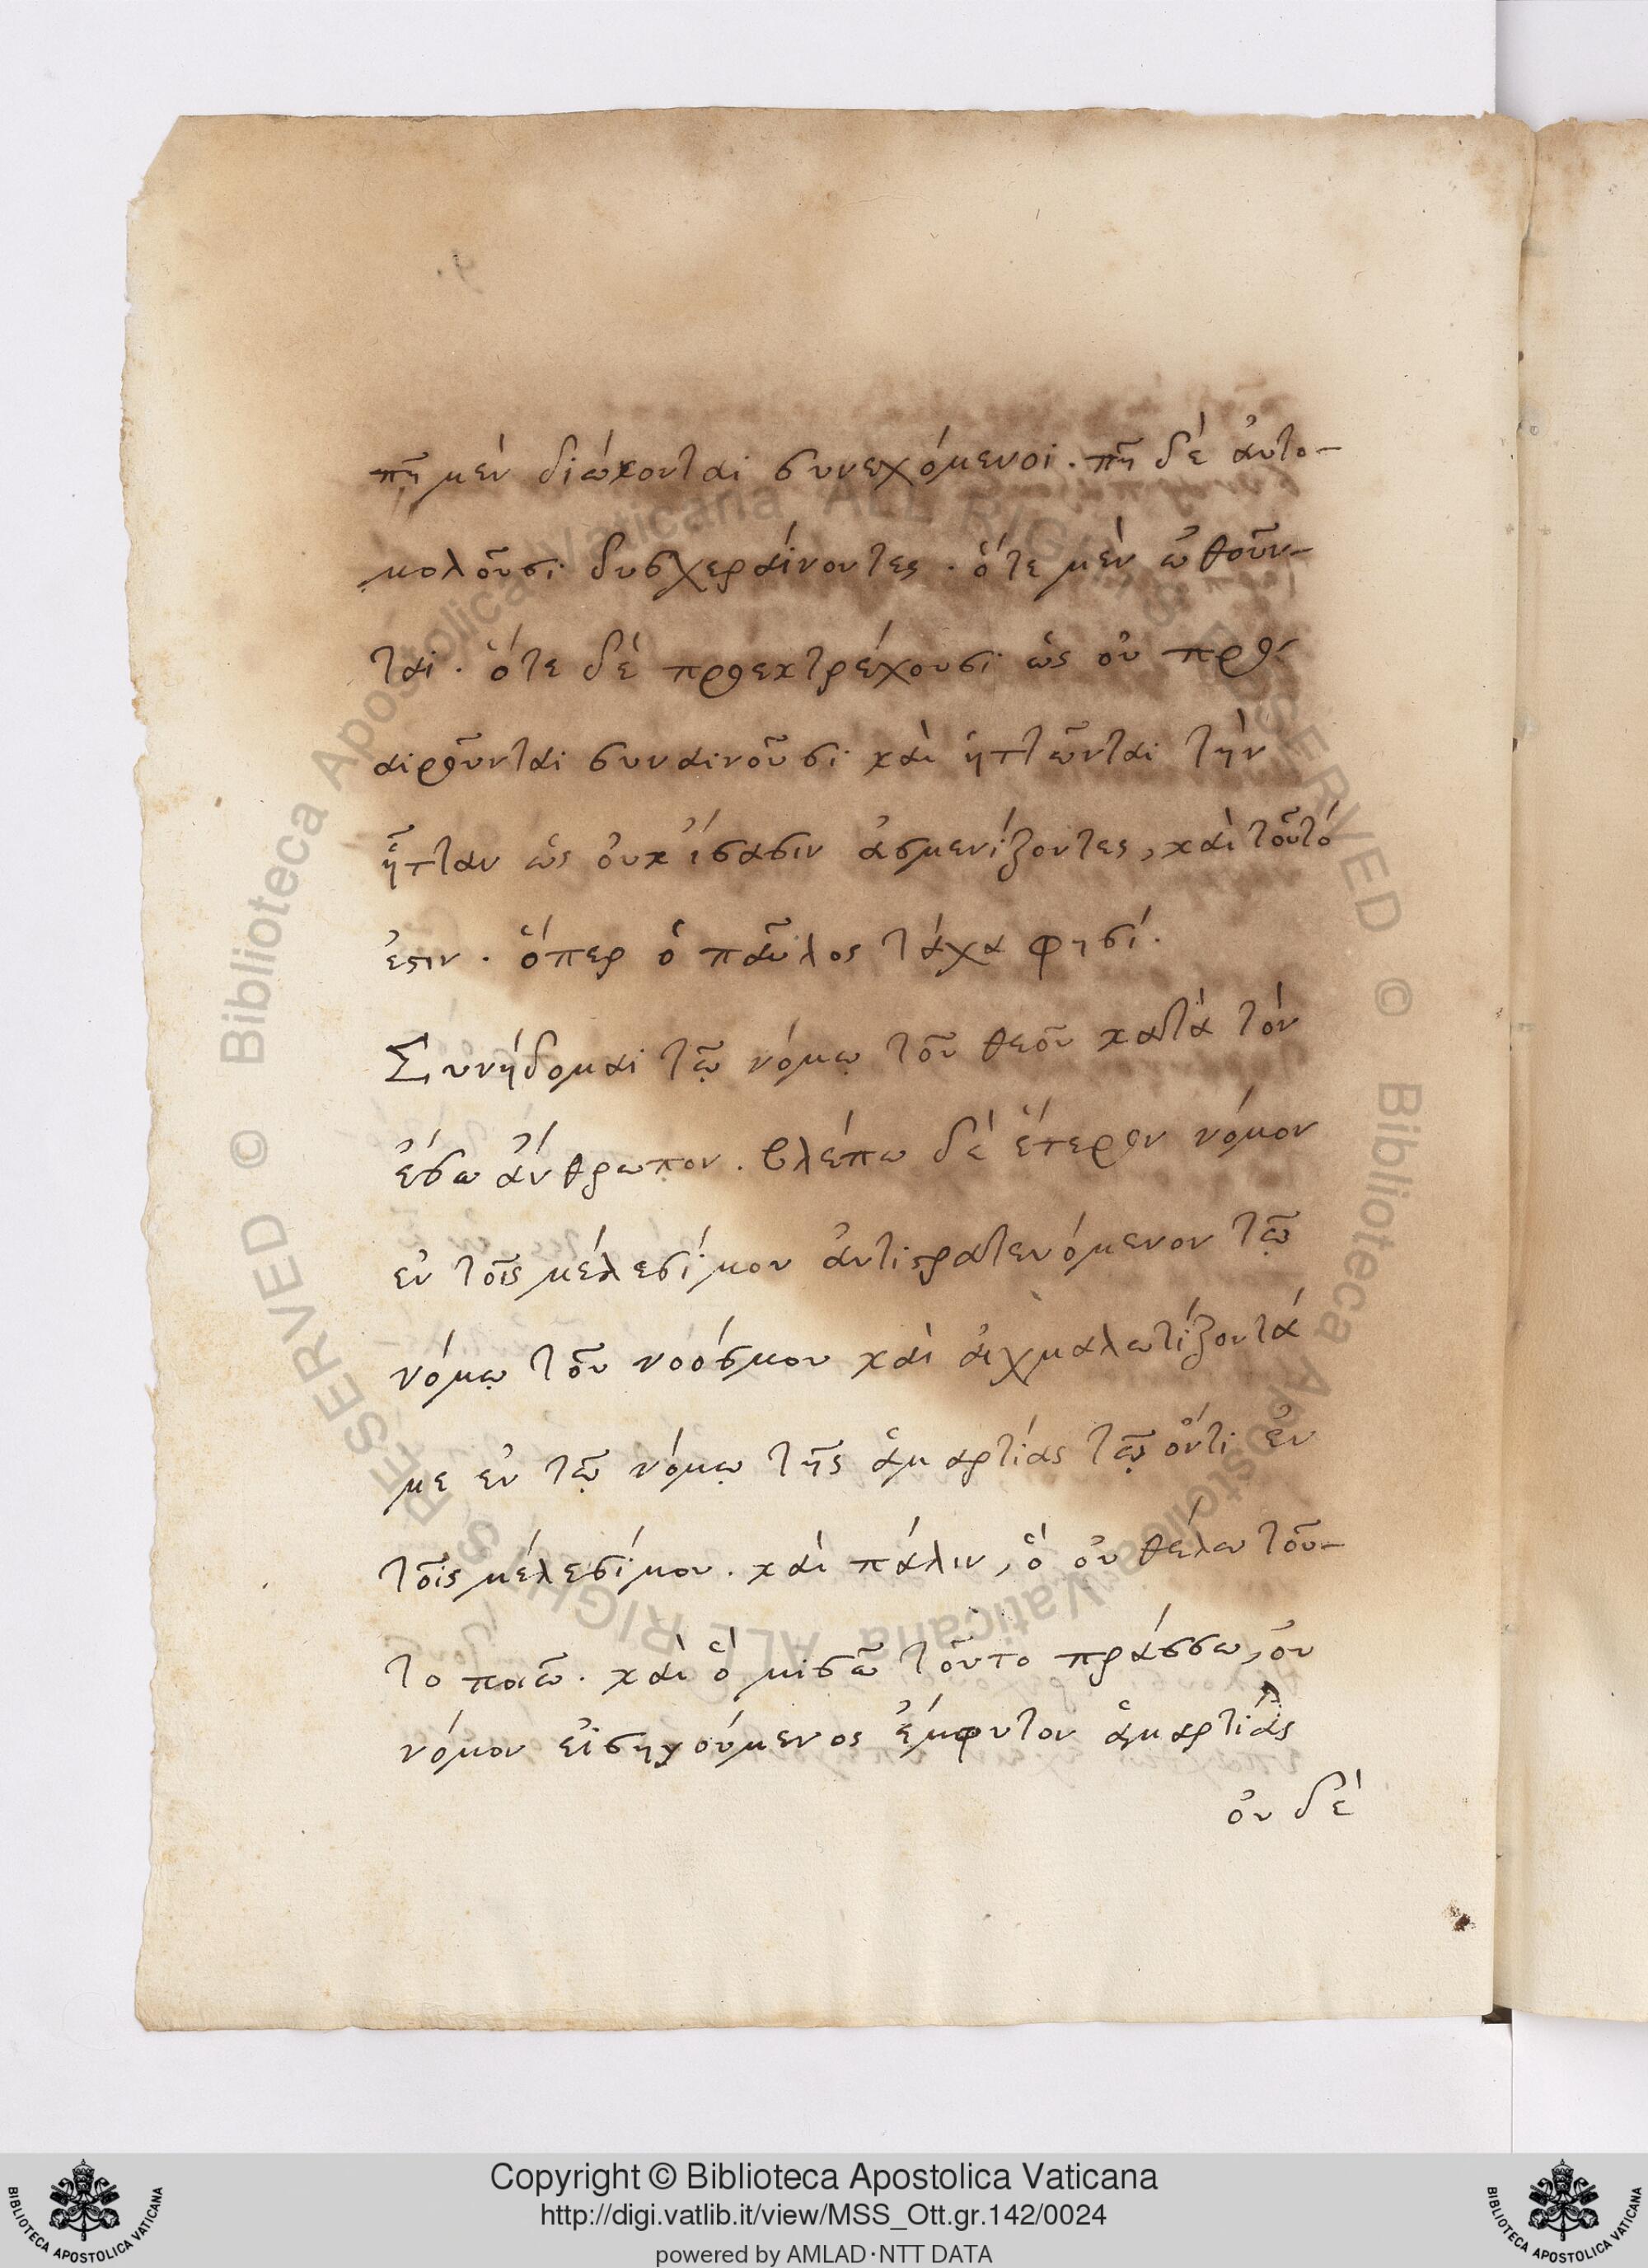 πῆ μὲν διώκονται συνεχόμενοι. πῆ δὲ ἀυτο-
μολοῦσι δυσχεραίνοντες. ὅτε μὲν ὠθοῦν-
ται. ὅτε δὲ προεκτρέχουσι ὡς οὐ προ-
αιροῦνται συναινοῦσι καὶ ἡττῶνται τὴν
ἧτταν ὡς ὀυκ ἴσασιν ἀσμενίζοντες, καὶ τοῦτό
ἐστιν. ὅπερ ὁ παῦλος τάχα φησί.
Συνήδομαι τῶ νόμω τοῦ θεοῦ κατὰ τὸν
ἔσω ἄνθρωπον. βλέπω δὲ ἕτερον νόμον
ἐν τοῖς μέλεσί μου ἀντιστρατευόμενον τῶ
νόμω τοῦ νοός μου καὶ αἰχμαλωτίζοντά
με ἐν τῶ νόμω τῆς ἁμαρτίας τῶ ὄντι ἐν
τοῖς μέλεσί μου. καὶ πάλιν, ὃ οὐ θέλω τοῦ-
το ποιῶ. καὶ ὃ μισῶ τοῦτο πράσσω, οὐ
νόμον εἰσηγούμενος ἔμφυτον ἁμαρτίας
οὐ δὲ
Copyright © Biblioteca Apostolica Vaticana
http://digi.vatlib.it/view/MSS_Ott.gr.142/0024
powered by AMLAD·NTT DATA
BIBLIOTECA APOSTOLICA VATICANA
BIBLIOTECA APOSTOLICA VATICANA
© Biblioteca Apostolica Vaticana ALL RIGHTS RESERVED © Biblioteca Apostolica Vaticana ALL RIGHTS RESERVED